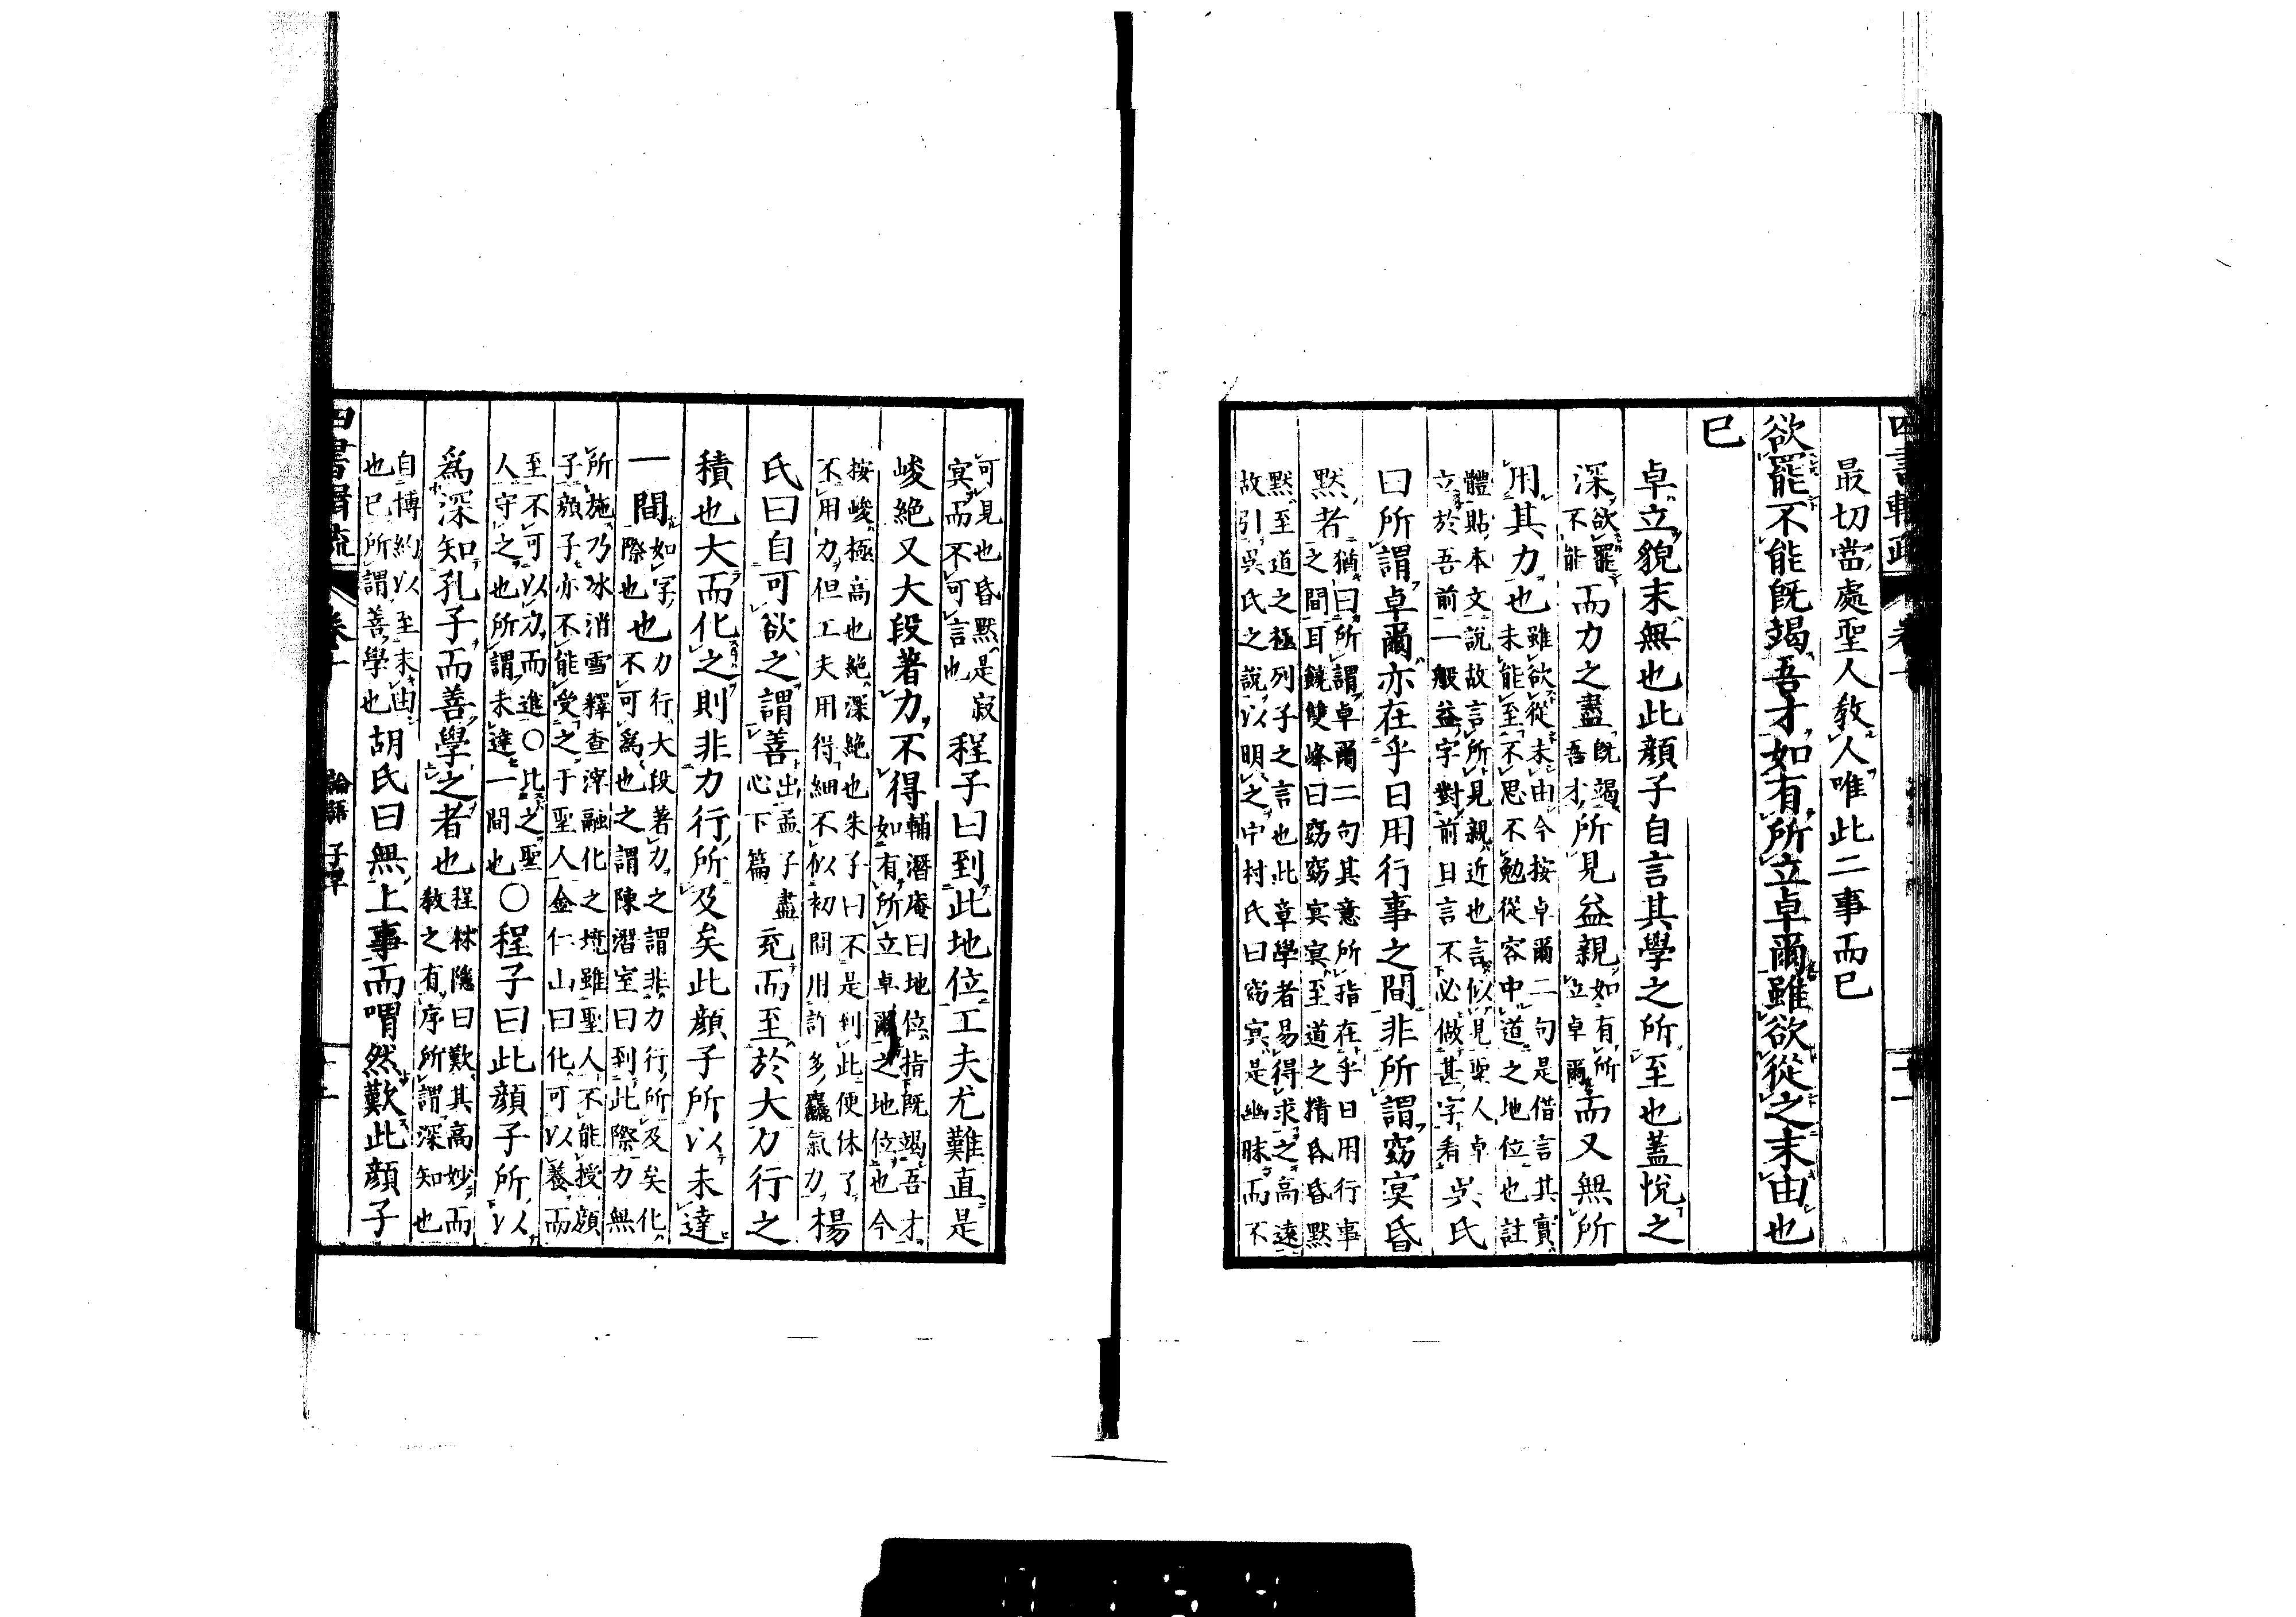 四書輯疏 卷十
最切當處聖人教人唯此二事而已
欲罷不能既竭吾才如有所立卓爾雖欲從之末由也
已
卓立貌末無也此顏子自言其學之所至也蓋悅之
深欲罷不能而力之盡既竭吾才所見益親如有所立卓爾而又無所
用其力也雖欲從末由今按卓爾二句是借言其實未能至不思不勉從容中道之地位也註
體貼本文說故言所見親近也言似見聖人卓立於吾前一般益字對前日言不必做甚字看吳氏
曰所謂卓爾亦在乎日用行事之間非所謂窈冥昏
默者猶曰所謂卓爾二句其意所指在乎日用行事之間耳饒雙峰曰窈窈冥冥至道之精昏昏默
默至道之極列子之言也此章學者易得求之高遠故引吳氏之說以明之中村氏曰窈冥是幽昧而不
可見也昏默是寂冥而不可言也程子曰到此地位工夫尤難直是
峻絕又大段著力不得輔潛庵曰地位指既竭吾才如有所立卓爾之地位也今
按峻極高也絕深絕也朱子曰不是到此便休了不用力但工夫用得細不似初間用許多麤氣力楊
氏曰自可欲之謂善出孟子盡心下篇充而至於大力行之
積也大而化之則非力行所及矣此顏子所以未達
一間如字際也也力行大段著力之謂非力行所及矣化不可為也之謂陳潛室曰到此際力無
所施乃冰消雪釋查滓融化之境雖聖人不能授顏子顏子亦不能受之于聖人金仁山曰化可以養而
至不可以力而進〇比之聖人守之也所謂未達一間也〇程子曰此顏子所以
為深知孔子而善學之者也程林隱曰歎其高妙而教之有序所謂深知也
自博約以至末由也已所謂善學也胡氏曰無上事而喟然歎此顏子
四書輯疏 卷十 論語 子罕